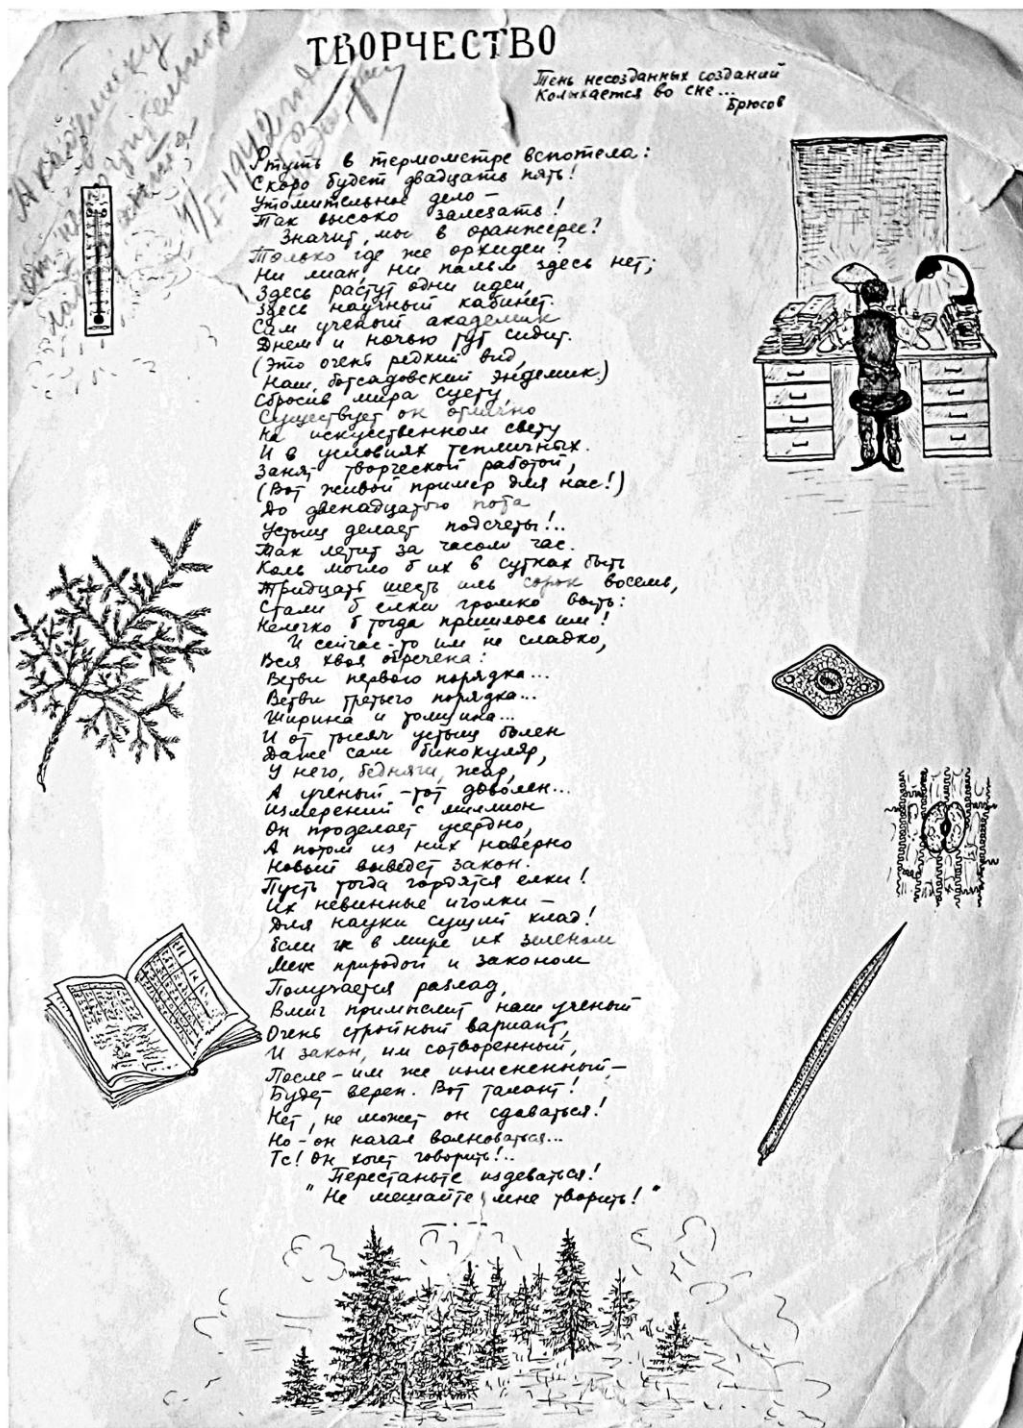 ТВОРЧЕСТВО
Тень несозданных созданий
Колыхается во сне...
Брюсов
Академику
Ртуть в термометре вспотела:
Скоро будет двадцать пять!
Утомительное дело —
Так высоко залезать!
Значит, мы в оранжерее?
Только где же орхидеи?
Ни лиан, ни пальм здесь нет;
Здесь растут одни идеи,
Здесь научный кабинет.
Сам ученый академик
Днем и ночью тут сидит.
(Это очень редкий вид,
Наш, ботсадовский эндемик.)
Сбросив мира суету,
Существует он отлично
На искусственном свету
И в условиях тепличных.
Занят творческой работой,
(Вот живой пример для нас!)
До двенадцатого пота
Устьиц делает подсчеты!..
Так летит за часом час.
Коль могло б их в сутках быть
Тридцать шесть иль сорок восемь,
Стали б елки громко выть:
Нелегко б тогда пришлось им!
И сейчас-то им не сладко,
Вся хвоя обречена:
Ветви первого порядка...
Ветви третьего порядка...
Ширина и толщина...
И от тысяч устьиц болен
Даже сам бинокуляр,
У него, бедняги, жар,
А ученый — тот доволен...
Измерений с миллион
Он проделает усердно,
А потом из них наверно
Новый выведет закон.
Пусть тогда гордятся елки!
Их невинные иголки —
Для науки сущий клад!
Если ж в мире их зеленом
Меж природой и законом
Получается разлад,
Вмиг примыслит наш ученый
Очень стройный вариант,
И закон, им сотворенный,
После — им же измененный, —
Будет верен. Вот талант!
Нет, не может он сдаваться!
Но — он начал волноваться...
Тс! Он хочет говорить!..
Перестаньте издеваться!
"Не мешайте мне творить!"